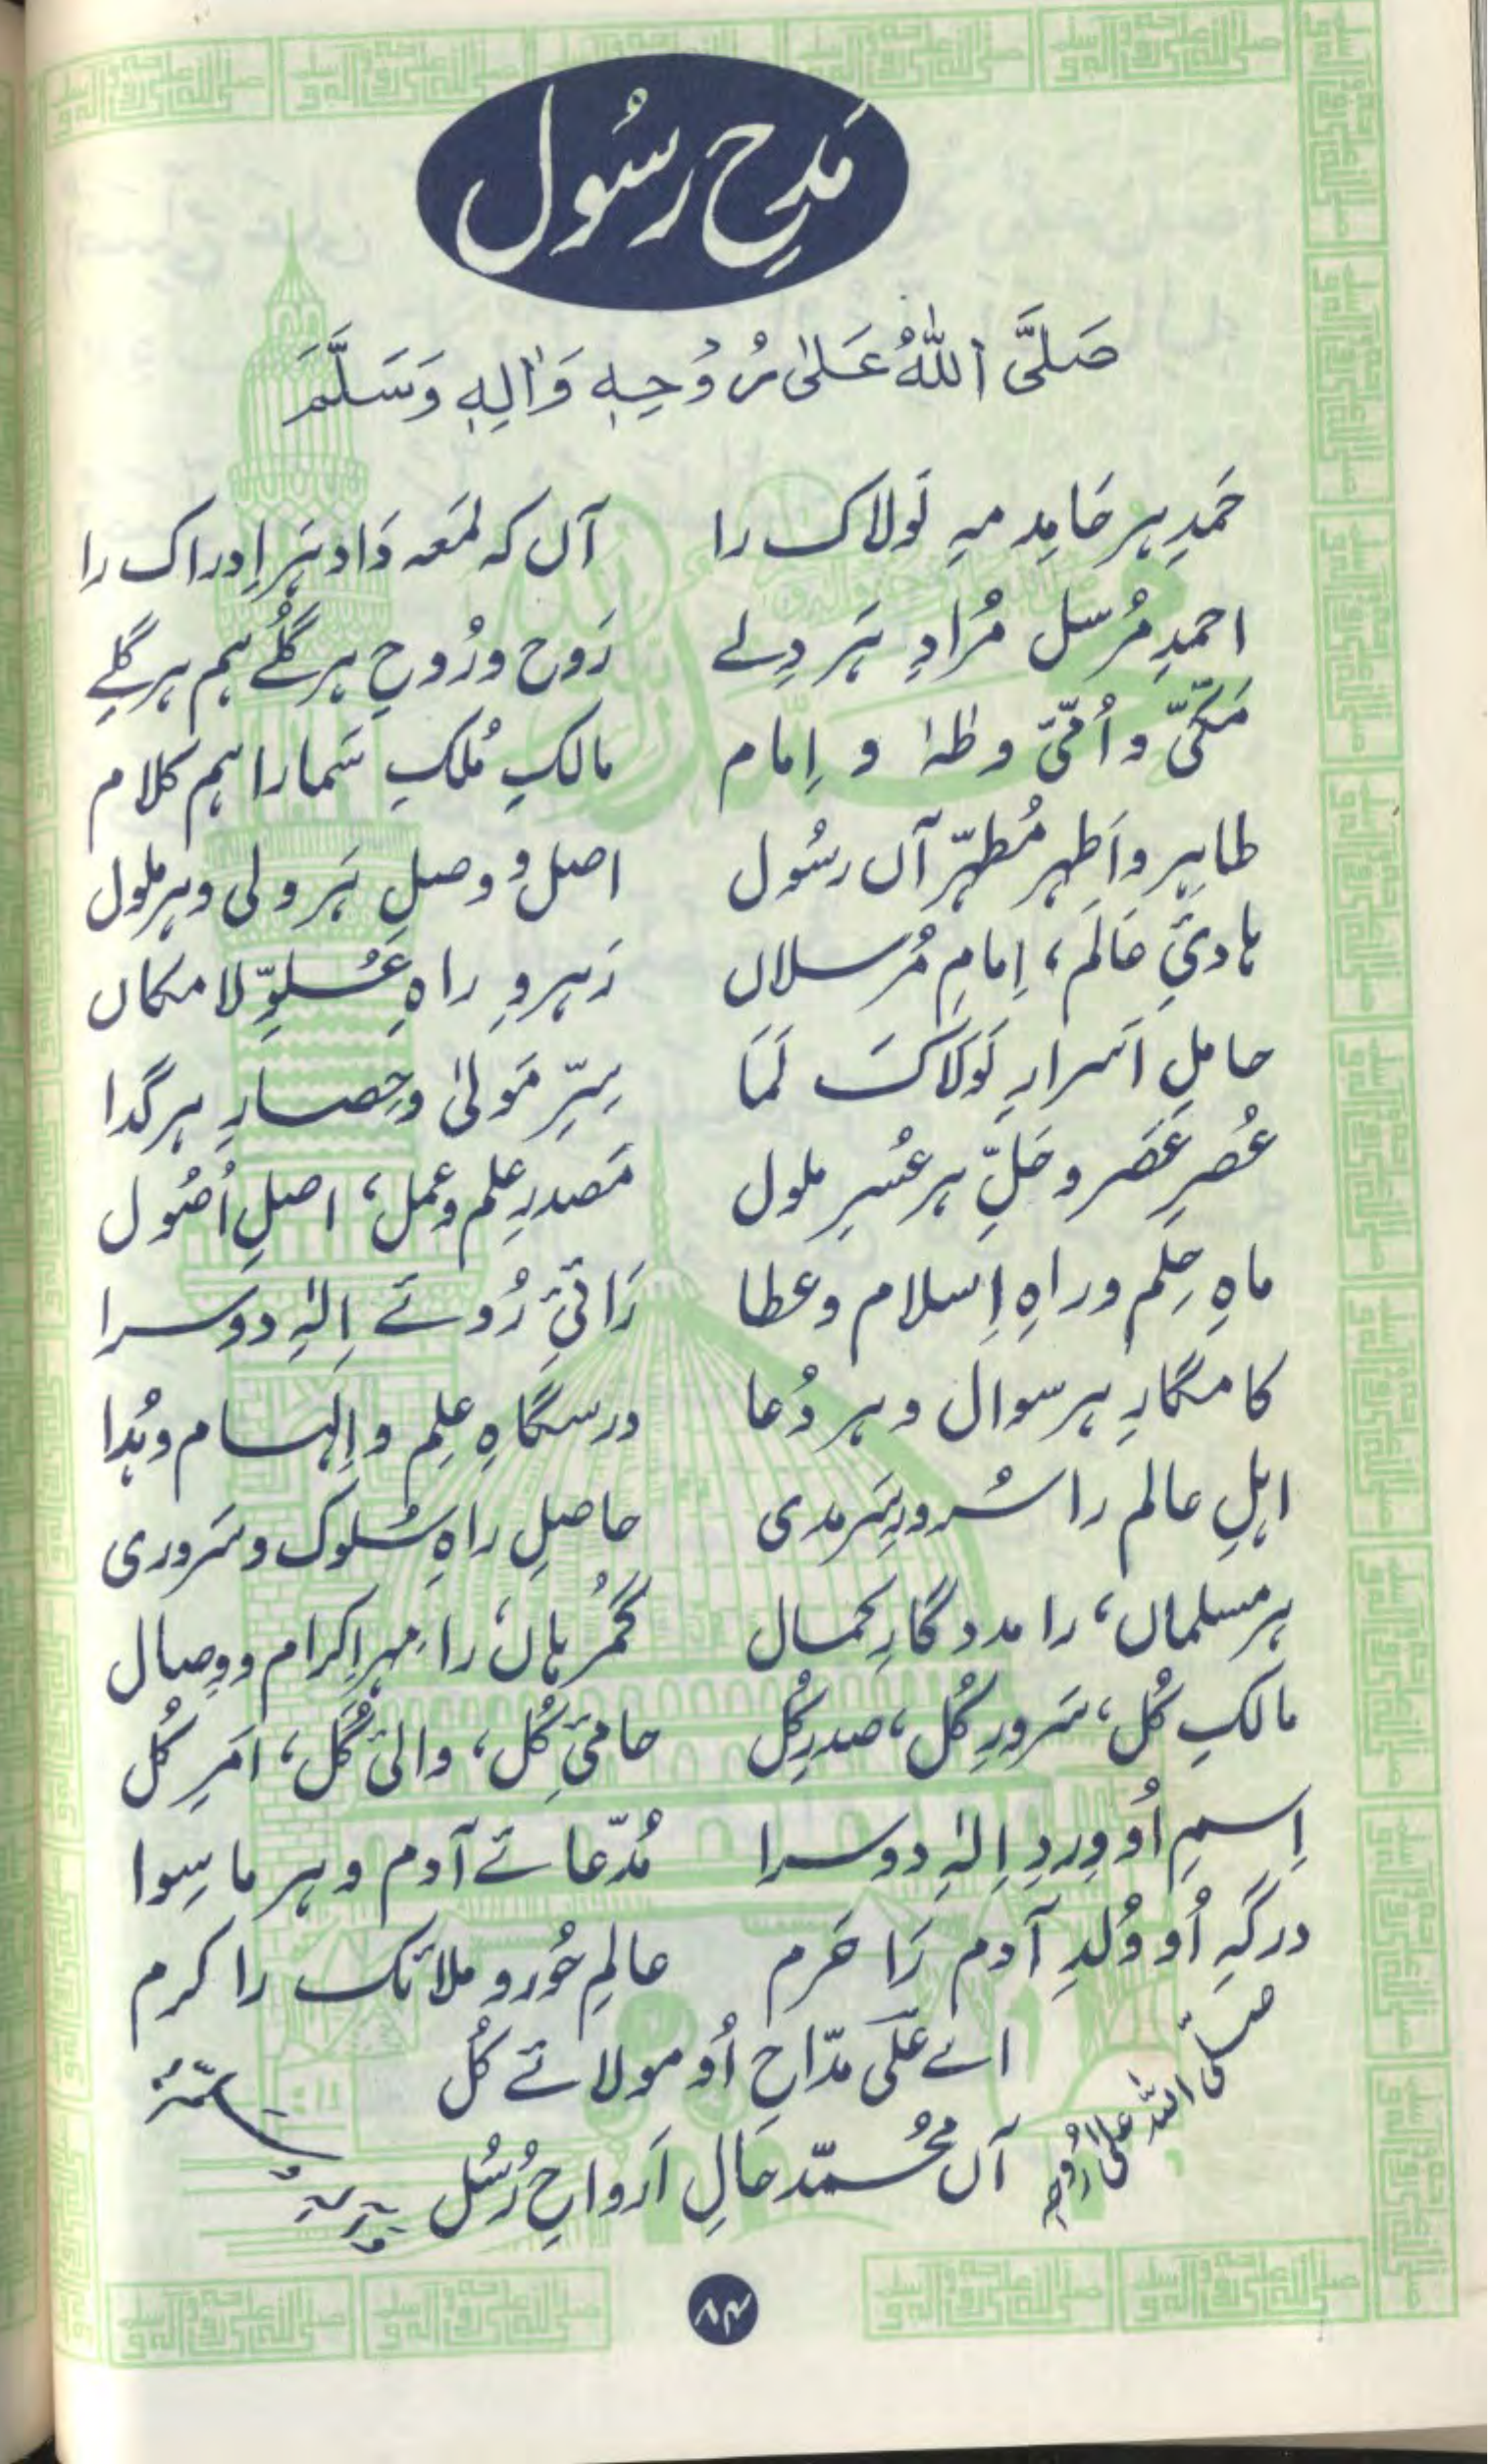 مَدحِ رسُول
صَلَّى اللّٰهُ عَلٰى رُوْحِهٖ وَاٰلِهٖ وَسَلَّمَ
حَمدِ ہر حَامِد مہِ لَولاک را آں کہ لمَعہ دَاد ہَر اِدراک را
احمدِ مُرسل مُرادِ ہَر دِلے رَوح و رُوحِ ہر گُلے ہم ہر گِلے
مَکّیّ و اُمّیّ و طٰہٰ و اِمام مالکِ مُلکِ سَما را ہم کلام
طاہِر و اَطہر مُطہّر آں رسُول اصل و وصلِ ہَر ولی و ہر ملول
ہادئِ عَالَم، اِمامِ مُرسلاں رَہروِ راہِ عُلوِّ لا مکاں
حاملِ اَسرارِ لَولَاکَ لَمَا سِرِّ مَولیٰ و حِصارِ ہر گدا
عُصرِ عَصَر و حَلِّ ہر عُسرِ ملول مَصدرِ عِلم و عمل، اصلِ اُصُول
ماہِ حِلم و راہِ اِسلام و عطا رَائیِٔ رُوئے اِلٰہِ دوسرا
کامگارِ ہر سوال و ہر دُعا درسگاہِ عِلم و اِلہام و ہُدا
اہلِ عالم را سُرورِ سَرمدی حاصلِ راہِ سُلوک و سَروری
ہر مسلماں، را مددگارِ کمال گمُرہاں، را مہرِ اکرام و وِصال
مالکِ کُل، سَرورِ کُل، صدرِ کُل حامیِٔ کُل، والیِٔ کُل، امَرِ کُل
اِسمِ اُو وِردِ اِلٰہِ دوسرا مُدّعائے آدم و ہر ما سِوا
درگہِ اُو وُلدِ آدم رَا حَرم عالمِ حُور و ملائک را کرم
اے علؔی مدّاحِ اُو مولائے کُل
آں مُحَمّد حَالِ اَرواحِ رُسُل
صلّی اللہ علیٰ رُوحہٖ
۸۴